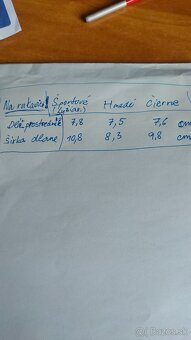 Na rukavice Športové Hnedé čierne
(lyžiar.)
Dĺž. prostredník 7,8 7,5 7,6 cm
šírka dlane 10,8 8,3 9,8 cm
© Bazos.sk